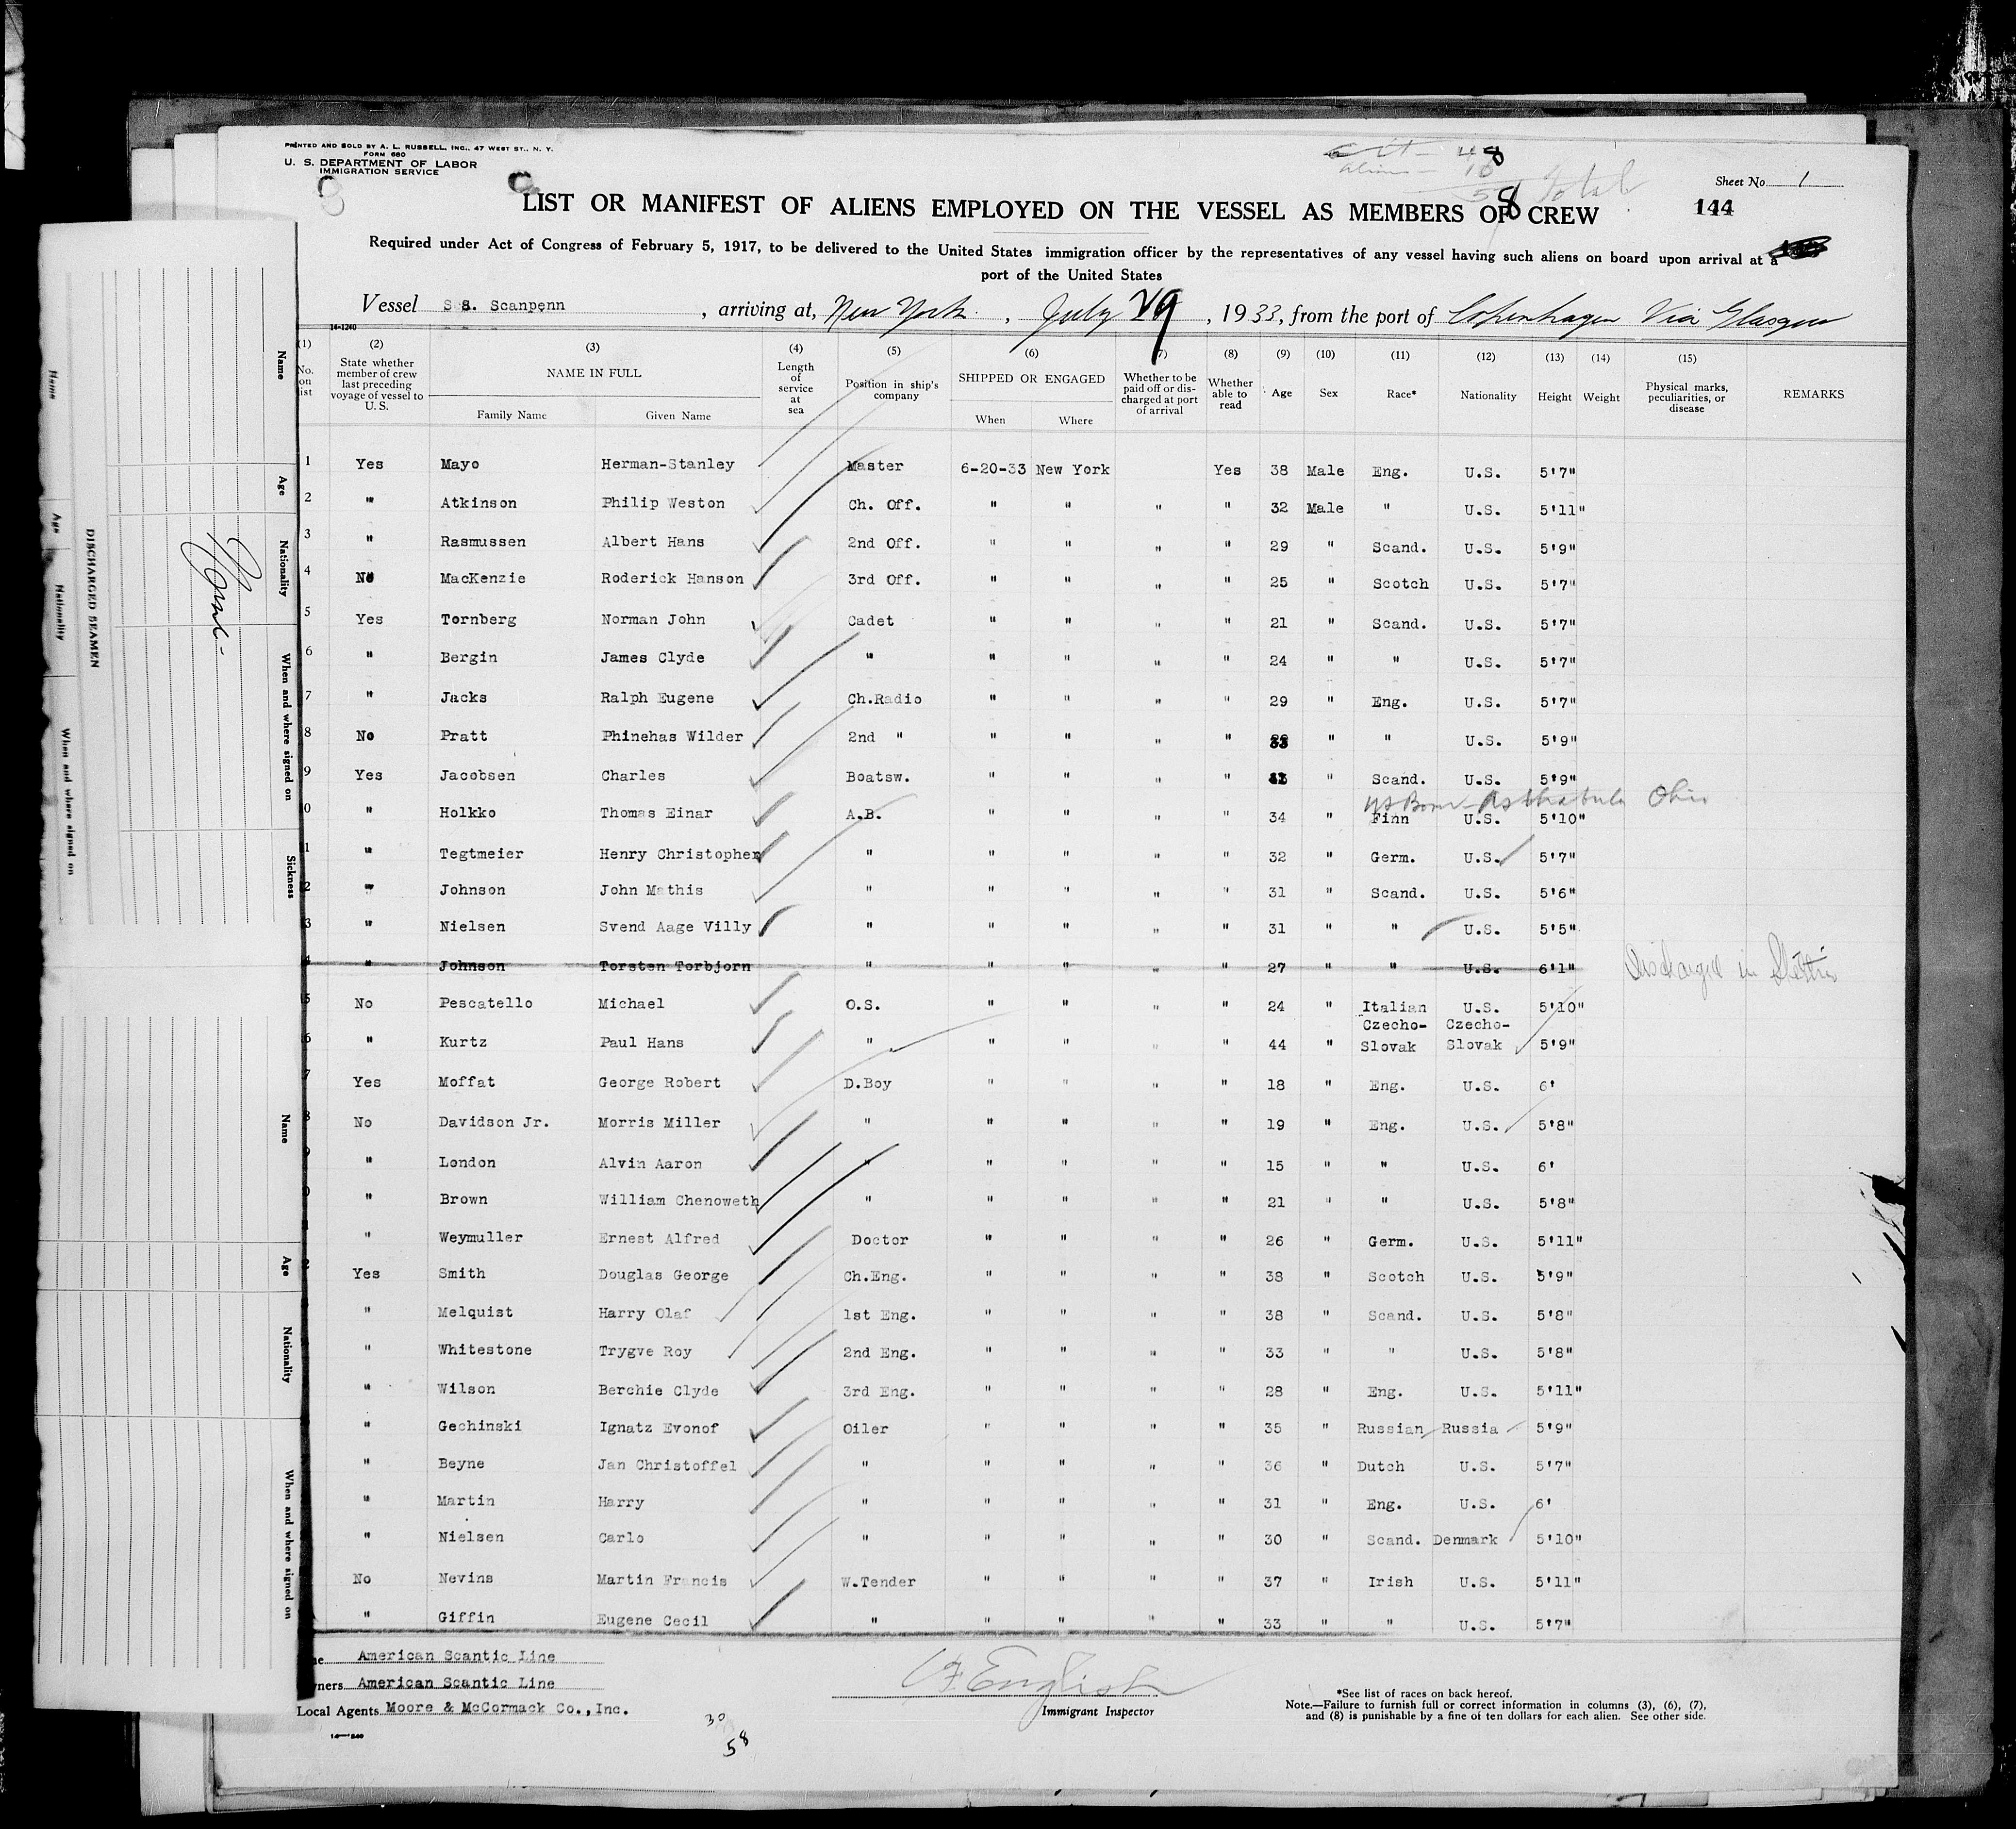 PRINTED AND SOLD BY A. L. RUSSELL, INC., 47 WEST ST., N. Y.
FORM 680
U. S. DEPARTMENT OF LABOR
IMMIGRATION SERVICE
Total
Sheet No 1
LIST OR MANIFEST OF ALIENS EMPLOYED ON THE VESSEL AS MEMBERS OF CREW
144
Required under Act of Congress of February 5, 1917, to be delivered to the United States immigration officer by the representatives of any vessel having such aliens on board upon arrival at a
port of the United States
Vessel S.S. Scanpenn , arriving at, New York , July 29 , 1933, from the port of Copenhagen Via Glasgow
14-1240
(1) (2) (3) (4) (5) (6) (7) (8) (9) (10) (11) (12) (13) (14) (15)
No. on list State whether member of crew last preceding voyage of vessel to U. S. NAME IN FULL Length of service at sea Position in ship's company SHIPPED OR ENGAGED Whether to be paid off or discharged at port of arrival Whether able to read Age Sex Race* Nationality Height Weight Physical marks, peculiarities, or disease REMARKS
Family Name Given Name When Where
1 Yes Mayo Herman-Stanley Master 6-20-33 New York Yes 38 Male Eng. U.S. 5'7"
2 " Atkinson Philip Weston Ch. Off. " " " " 32 Male " U.S. 5'11"
3 " Rasmussen Albert Hans 2nd Off. " " " " 29 " Scand. U.S. 5'9"
4 No MacKenzie Roderick Hanson 3rd Off. " " " " 25 " Scotch U.S. 5'7"
5 Yes Tornberg Norman John Cadet " " " " 21 " Scand. U.S. 5'7"
6 " Bergin James Clyde " " " " " 24 " " U.S. 5'7"
7 " Jacks Ralph Eugene Ch.Radio " " " " 29 " Eng. U.S. 5'7"
8 No Pratt Phinehas Wilder 2nd " " " " " 33 " " U.S. 5'9"
9 Yes Jacobsen Charles Boatsw. " " " " " Scand. U.S. 5'9"
US Born - Ashtabula Ohio
10 " Holkko Thomas Einar A.B. " " " " 34 " Finn U.S. 5'10"
1 " Tegtmeier Henry Christopher " " " " " 32 " Germ. U.S. 5'7"
2 " Johnson John Mathis " " " " " 31 " Scand. U.S. 5'6"
3 " Nielsen Svend Aage Villy " " " " " 31 " " U.S. 5'5"
4 " Johnson Torsten Torbjorn " " " " " 27 " " U.S. 6'1" Discharged in Stettin
5 No Pescatello Michael O.S. " " " " 24 " Italian U.S. 5'10"
6 " Kurtz Paul Hans " " " " " 44 " Czecho-Slovak Czecho-Slovak 5'9"
7 Yes Moffat George Robert D.Boy " " " " 18 " Eng. U.S. 6'
8 No Davidson Jr. Morris Miller " " " " " 19 " Eng. U.S. 5'8"
" London Alvin Aaron " " " " " 15 " " U.S. 6'
" Brown William Chenoweth " " " " " 21 " " U.S. 5'8"
" Weymuller Ernest Alfred Doctor " " " " 26 " Germ. U.S. 5'11"
Yes Smith Douglas George Ch.Eng. " " " " 38 " Scotch U.S. 5'9"
" Melquist Harry Olaf 1st Eng. " " " " 38 " Scand. U.S. 5'8"
" Whitestone Trygve Roy 2nd Eng. " " " " 33 " " U.S. 5'8"
" Wilson Berchie Clyde 3rd Eng. " " " " 28 " Eng. U.S. 5'11"
" Gechinski Ignatz Evonof Oiler " " " " 35 " Russian Russia 5'9"
" Beyne Jan Christoffel " " " " " 36 " Dutch U.S. 5'7"
" Martin Harry " " " " " 31 " Eng. U.S. 6'
" Nielsen Carlo " " " " " 30 " Scand. Denmark 5'10"
No Nevins Martin Francis W.Tender " " " " 37 " Irish U.S. 5'11"
" Giffin Eugene Cecil " " " " " 33 " " U.S. 5'7"
American Scantic Line
American Scantic Line
Local Agents Moore & McCormack Co.,Inc.
English
Immigrant Inspector
*See list of races on back hereof.
Note.—Failure to furnish full or correct information in columns (3), (6), (7),
and (8) is punishable by a fine of ten dollars for each alien. See other side.
30
58
Name Age Nationality When and where signed on Sickness
DISCHARGED SEAMEN
Name Age Nationality When and where signed on
Name Age Nationality When and where signed on